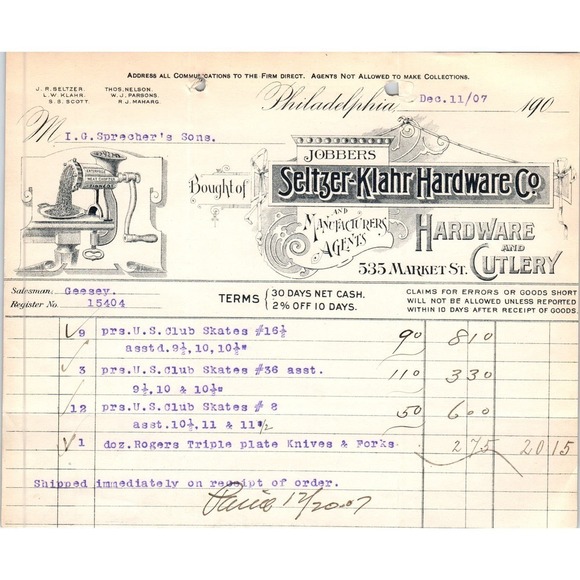 ADDRESS ALL COMMUNICATIONS TO THE FIRM DIRECT. AGENTS NOT ALLOWED TO MAKE COLLECTIONS.
J. R. SELTZER. THOS. NELSON.
L. W. KLAHR. W. J. PARSONS.
S. S. SCOTT. R. J. MAHARG.
Philadelphia, Dec. 11/07 190
M I.G. Sprecher's Sons.
JOBBERS
Bought of Seltzer-Klahr Hardware Co
AND MANUFACTURERS AGENTS
HARDWARE AND CUTLERY
535 MARKET ST.
ENTERPRISE MEAT CHOPPER
Salesman: Geesey.
Register No. 15404
TERMS { 30 DAYS NET CASH. 2% OFF 10 DAYS.
CLAIMS FOR ERRORS OR GOODS SHORT
WILL NOT BE ALLOWED UNLESS REPORTED
WITHIN 10 DAYS AFTER RECEIPT OF GOODS.
9 prs. U.S. Club Skates #16½ 90 810
asstd. 9½, 10, 10½"
3 prs. U.S. Club Skates #36 asst. 110 330
9½, 10 & 10½"
12 prs. U.S. Club Skates # 8 50 600
asst. 10½, 11 & 11 1/2
1 doz. Rogers Triple plate Knives & Forks. 275 2015
Shipped immediately on receipt of order.
Paid 12/20-07